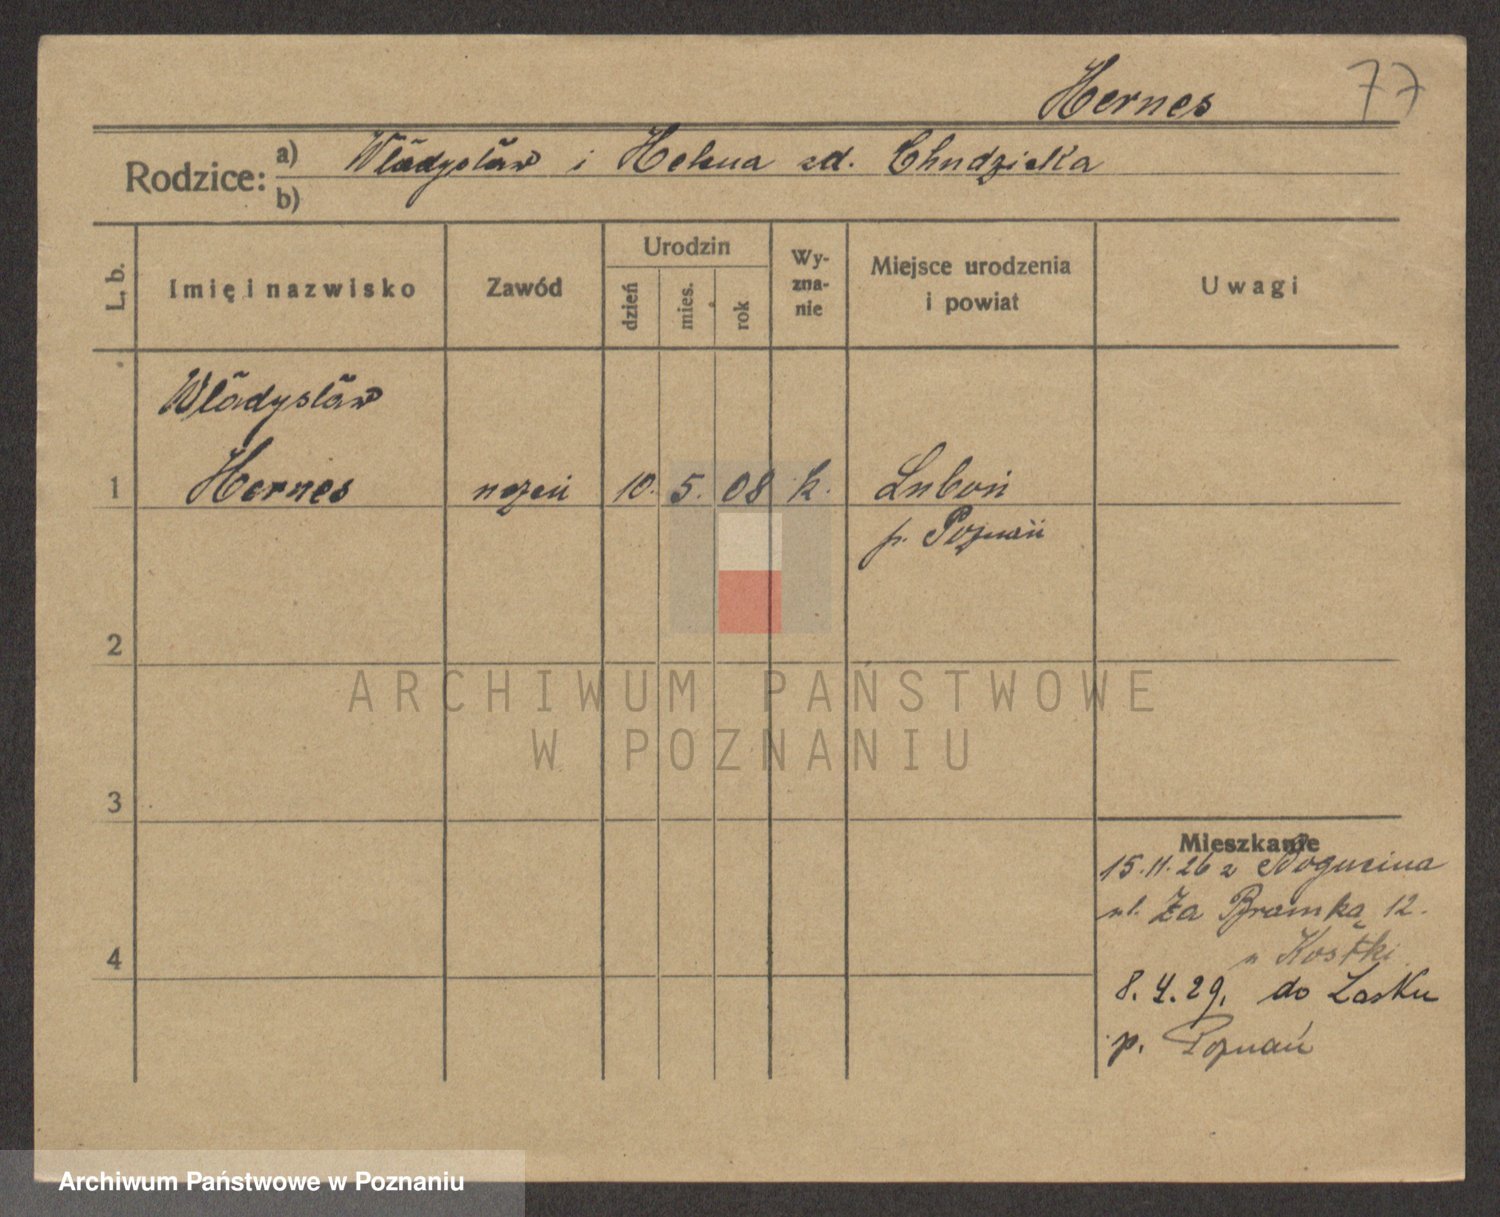 Hernes 77
Rodzice: a) Władysław i Helena zd. Chudzicka
b)
L. b.
Imię i nazwisko
Zawód
Urodzin
dzień
mies.
rok
Wy-
zna-
nie
Miejsce urodzenia
i powiat
Uwagi
Władysław
1 Hernes uczeń 10. 5. 08 k. Luboń
p. Poznań
2
ARCHIWUM PAŃSTWOWE
W POZNANIU
3
Mieszkanie
15.11.26 z
ul. Za Bramką 12.
u Kostki
4
8.4.29. do Lasku
p. Poznań
Archiwum Państwowe w Poznaniu